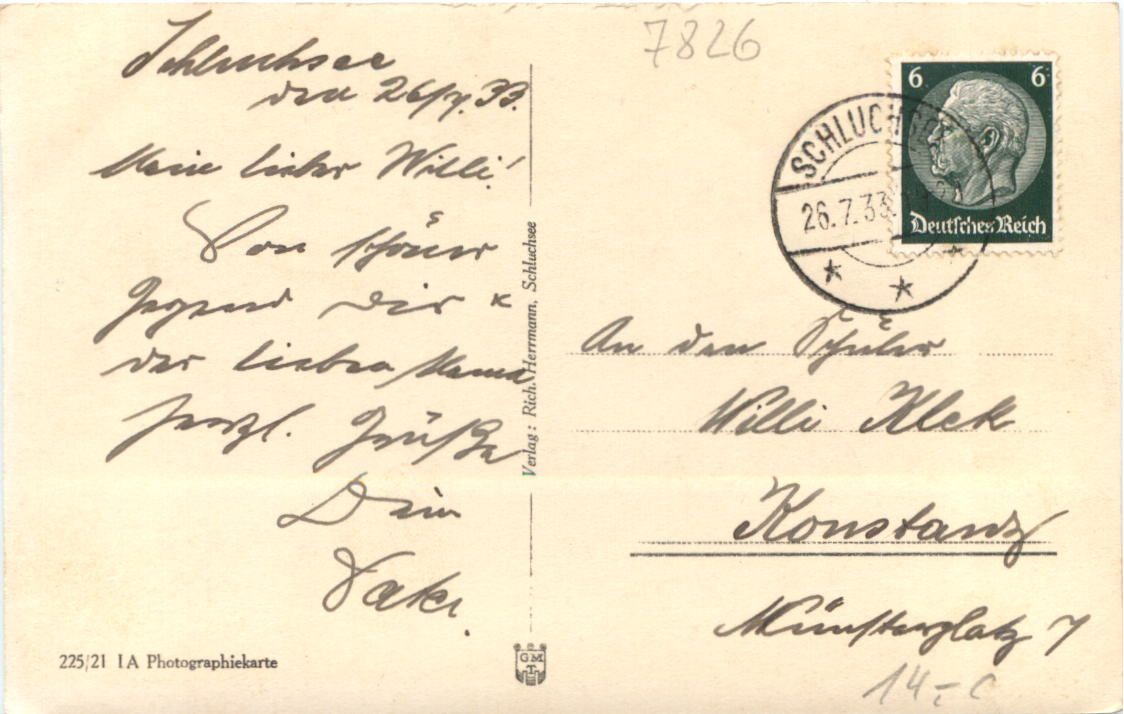 7826
Schluchsee
den 26/7.33.
Mein lieber Willi!
Von schöner
Gegend Dir &
der lieben Mama
herzl. Grüße
Dein
Vater.
225/21 I A Photographiekarte
Verlag: Rich. Herrmann, Schluchsee
GMT
6 6
Deutsches Reich
SCHLUCHSEE
26.7.33.
An den Schüler
Willi Klek
Konstanz
Münsterplatz 7
14,-